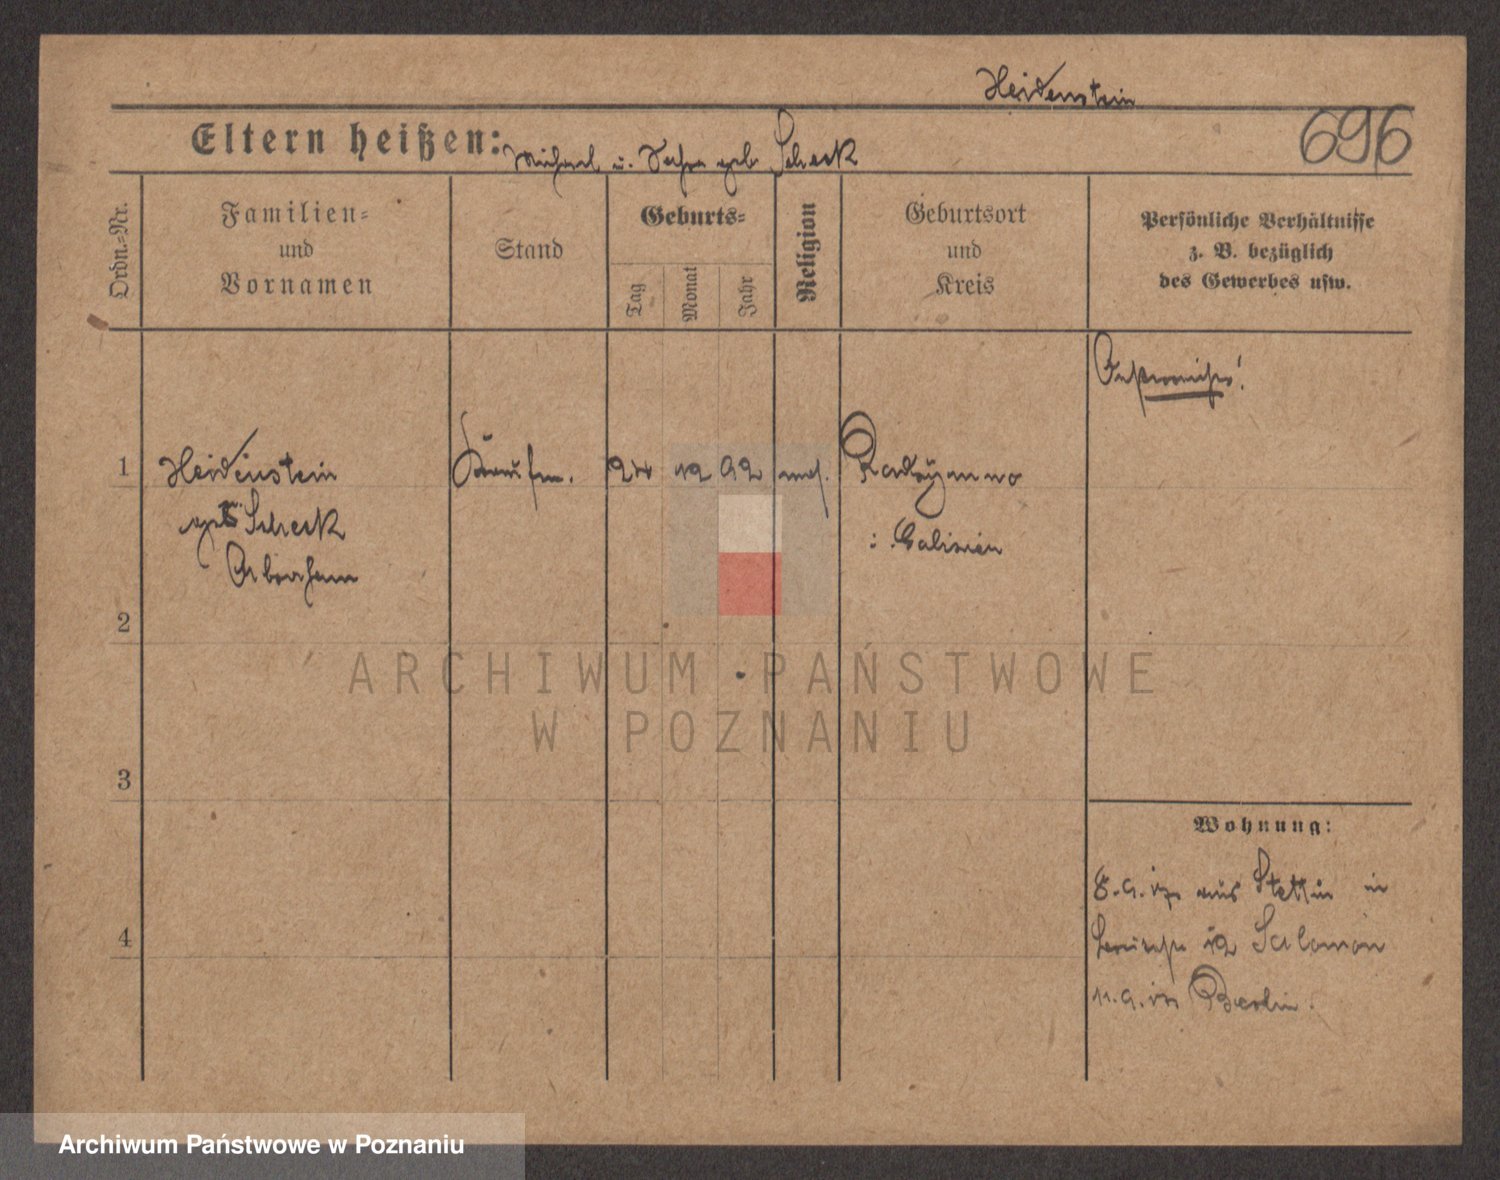 Heidenstein
696
Eltern heißen: Michael u. geb Scheck
Ordn.=Nr.
Familien=
und
Vornamen
Stand
Geburts=
Tag
Monat
Jahr
Religion
Geburtsort
und
Kreis
Persönliche Verhältnisse
z. B. bezüglich
des Gewerbes usw.
1
Heidenstein
Kaufm.
12 92 mos.
Radymno
geb Scheck
i. Galizien
Abraham
2
ARCHIWUM PAŃSTWOWE
W POZNANIU
3
Wohnung:
8.9. aus Stettin in
12 Salomon
4
11.9. Berlin.
Archiwum Państwowe w Poznaniu